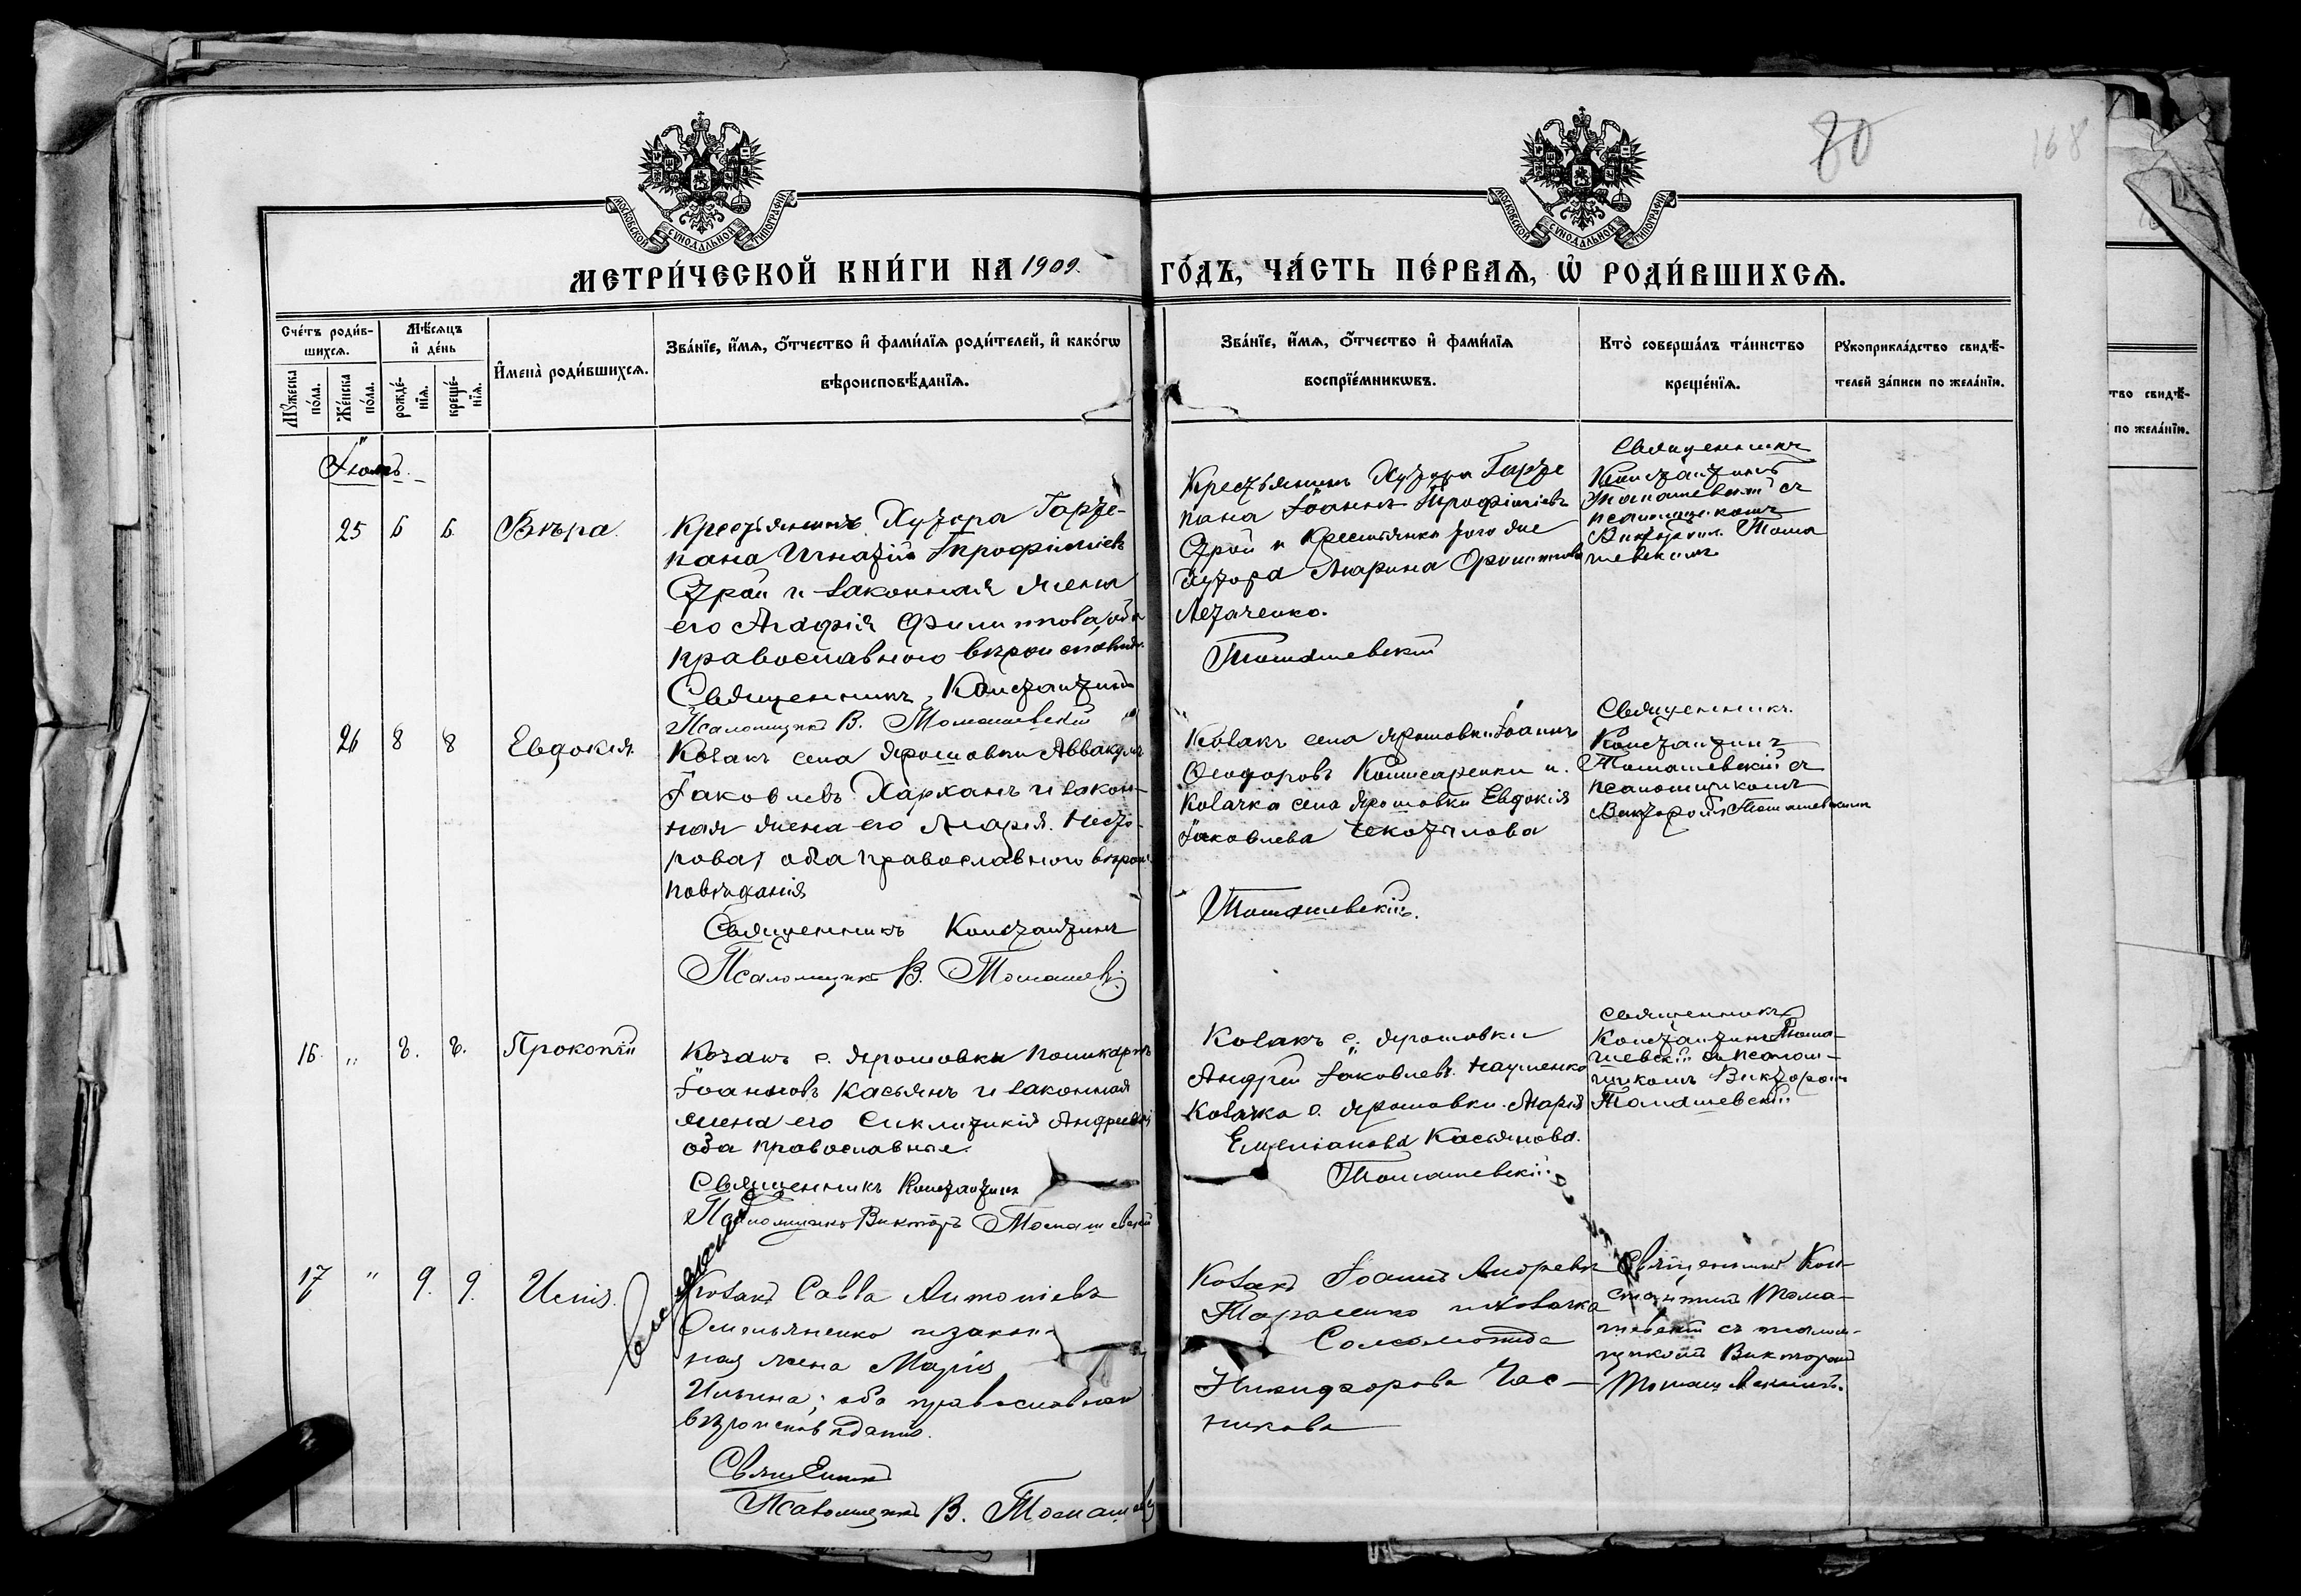 80
168
МОСКОВСКОЙ СѴНОДАЛЬНОЙ ТИПОГРАФІИ
МОСКОВСКОЙ СѴНОДАЛЬНОЙ ТИПОГРАФІИ
МЕТРИ́ЧЕСКОЙ КНИ́ГИ НА 1909.
ГО́ДЪ, ЧА́СТЬ ПЕ́РВАѦ, Ѡ҆ РОДИ́ВШИХСѦ.
Сче́тъ роди́в-
шихсѧ.
Мꙋ́жеска по́ла.
Же́нска по́ла.
Мѣ́сѧцъ
и҆ де́нь
рожде́-нїѧ.
креще́-нїѧ.
И҆мена̀ роди́вшихсѧ.
Зва́нїе, и҆́мѧ, о҆́тчество и҆ фами́лїѧ роди́телей, и҆ како́гѡ
вѣроисповѣ́данїѧ.
Зва́нїе, и҆́мѧ, о҆́тчество и҆ фами́лїѧ
воспрїе́мникѡвъ.
Кто̀ соверша́лъ та́инство
креще́нїѧ.
Рꙋкоприкла́дство свидѣ́-
телей за́писи по жела́нїю.
тво свидѣ́-
по жела́нїю.
Іюль.
25 6 6. Вѣра.
Крестьянинъ Хутора Гарте-
пана Игнатій Трофимовъ
и законная жена
его Агафія Филиппова, оба
православного вѣроисповѣд.
Священникъ Константинъ
Псаломщикъ В. Томашевскій
Крестьянинъ Хутора Гарте
пана Іоаннъ Трофимовъ
и Крестьянка того же
хутора Марина Филиппова
Легаченко.
Томашевскій
Священникъ
Константинъ
Томашевскій съ
псаломщикомъ
Викторомъ Тома
шевскимъ
26 8 8 Евдокія
Козакъ села Ярошовки Аввакумъ
Іаковлевъ Харханъ и закон-
ная жена его Марія Несто-
рова, оба православного вѣрои
повѣданія
Священникъ Константинъ
Псаломщикъ В. Томашев.
Козакъ села Ярошовки Іоаннъ
Ѳеодоровъ Коммисаренко и
Козачка села Ярошовки Евдокія
Іаковлева
Томашевскій.
Священникъ
Константинъ
Томашевскій съ
псаломщикомъ
Викторомъ Томашевскимъ
16. „ 8. 8. Прокопій
Козакъ с. Ярошовки Поликарпъ
Іоанновъ Касьянъ и законная
жена его Синклитикія Андреева
оба православные.
Священникъ Константинъ
Псаломщикъ Викторъ Томашевскій
Козакъ с. Ярошовки
Андрей Іаковлевъ Науменко
Козачка с. Ярошовки Марія
Емеліанова Касьянова.
Томашевскій
священникъ
Константинъ Тома-
шевскій съ псалом-
щикомъ Викторомъ
Томашевскій
17 „ 9. 9. Илія.
Козакъ Савва Антоніевъ
Омельяненко и закон-
ная жена Марія
Ильина; оба православнаго
вѣроисповѣданія.
Священникъ
Псаломщикъ В. Томашев
Козакъ Іоаннъ Андреевъ
Тараненко и козачка
Соломонида
Никифорова Час-
никова
Священникъ Кон-
стантинъ Тома-
шевскій съ псалом-
щикомъ Викторомъ
Томашевскимъ.